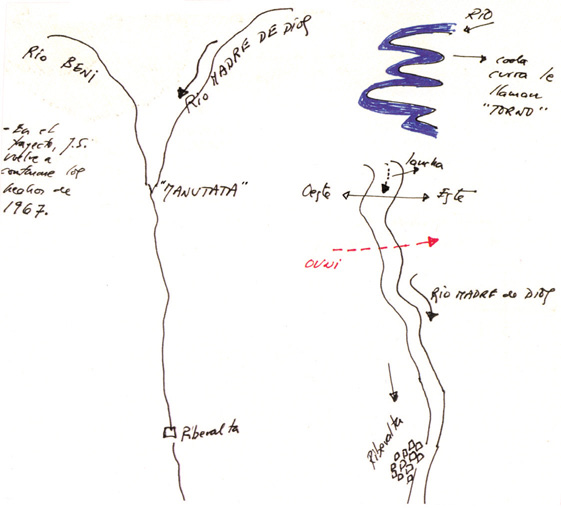 RIO BENI
RIO MADRE DE DIOS
- En el
trayecto, J.S.
vuelve a
contarme los
hechos de
1967.
"MANUTATA"
Riberalta
RIO
cada
curva le
llaman
"TORNO"
lancha
Oeste
Este
OVNI
RIO MADRE de DIOS
Riberalta